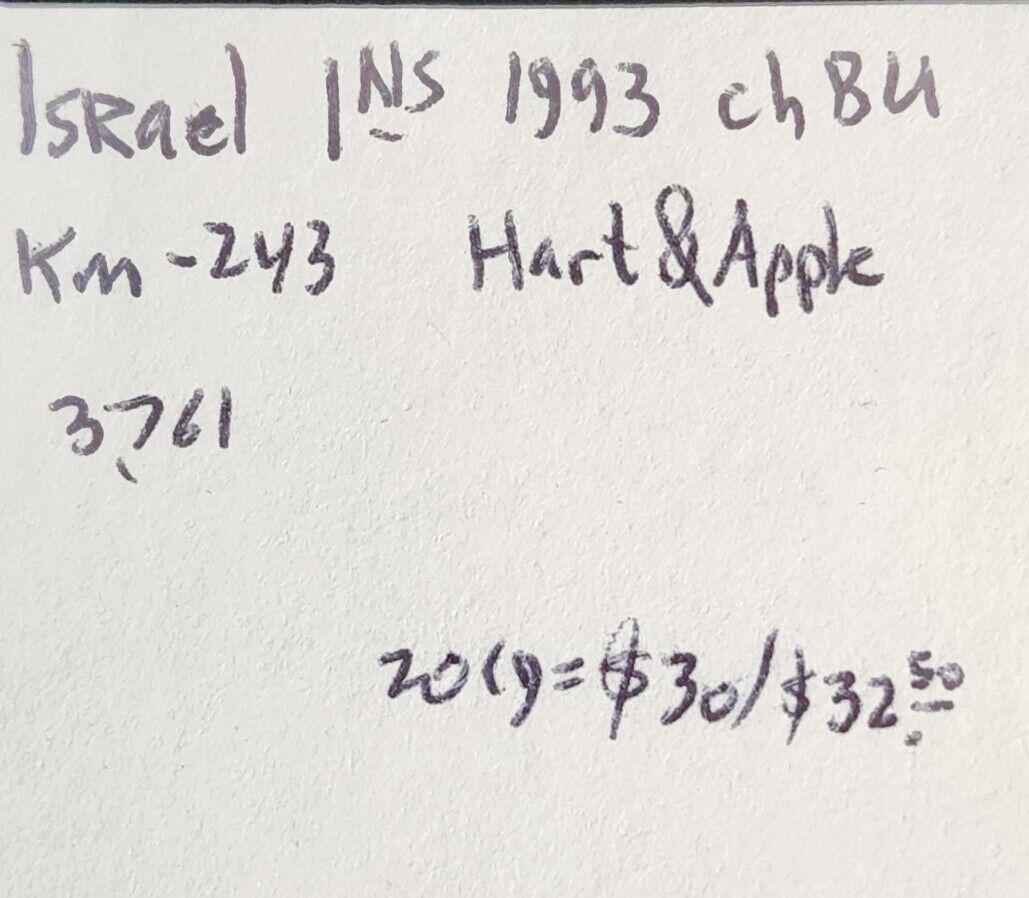 Israel 1 NS 1993 ch BU
Km-243 Hart & Apple
3761
20(9)=$30/$32.50